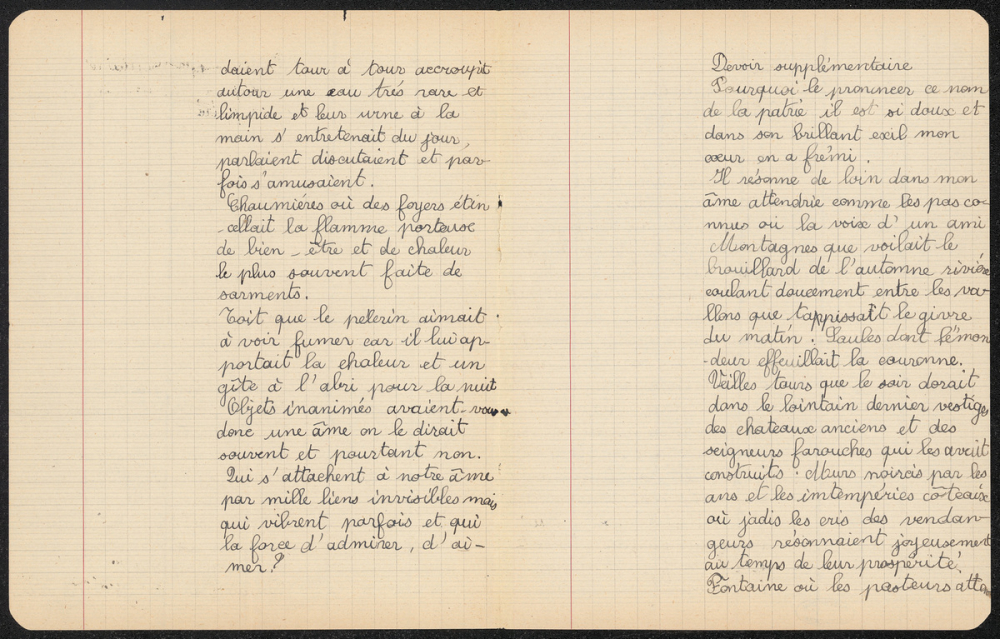 daient tour à tour accroupit
autour une eau trés rare et
limpide et leur urne à la
main s' entretenait du jour,
parlaient discutaient et par-
fois s'amusaient.
Chaumiéres où des foyers étin
-cellait la flamme porteuse
de bien - être et de chaleur
le plus souvent faite de
sarments.
Toit que le pelerin aimait
à voir fumer car il lui ap-
portait la chaleur et un
gîte à l'abri pour la nuit
Objets inanimés avaient-vous
donc une âme on le dirait
souvent et pourtant non.
Qui s'attachent à notre âme
par mille liens invisibles mais
qui vibrent parfois et qui
la force d'admirer, d'ai-
mer?
Devoir supplémentaire
Pourquoi le prononcer ce nom
de la patrie il est si doux et
dans son brillant exil mon
cœur en a frémi.
Il résonne de loin dans mon
âme attendrie comme les pas co-
nnus ou la voix d' un ami
Montagnes que voilait le
brouillard de l'automne riviére
coulant doucement entre les va-
llons que tappissait le givre
du matin. Saules dont l'émon
-deur effeuillait la couronne.
Veilles tours que le soir dorait
dans le lointain dernier vestige
des chateaux anciens et des
seigneurs farouches qui les avait
construits. Murs noircis par les
ans et les imtempéries côteaux
où jadis les cris des vendan-
geurs résonnaient joyeusement
au temps de leur prospérité.
Fontaine où les pasteurs